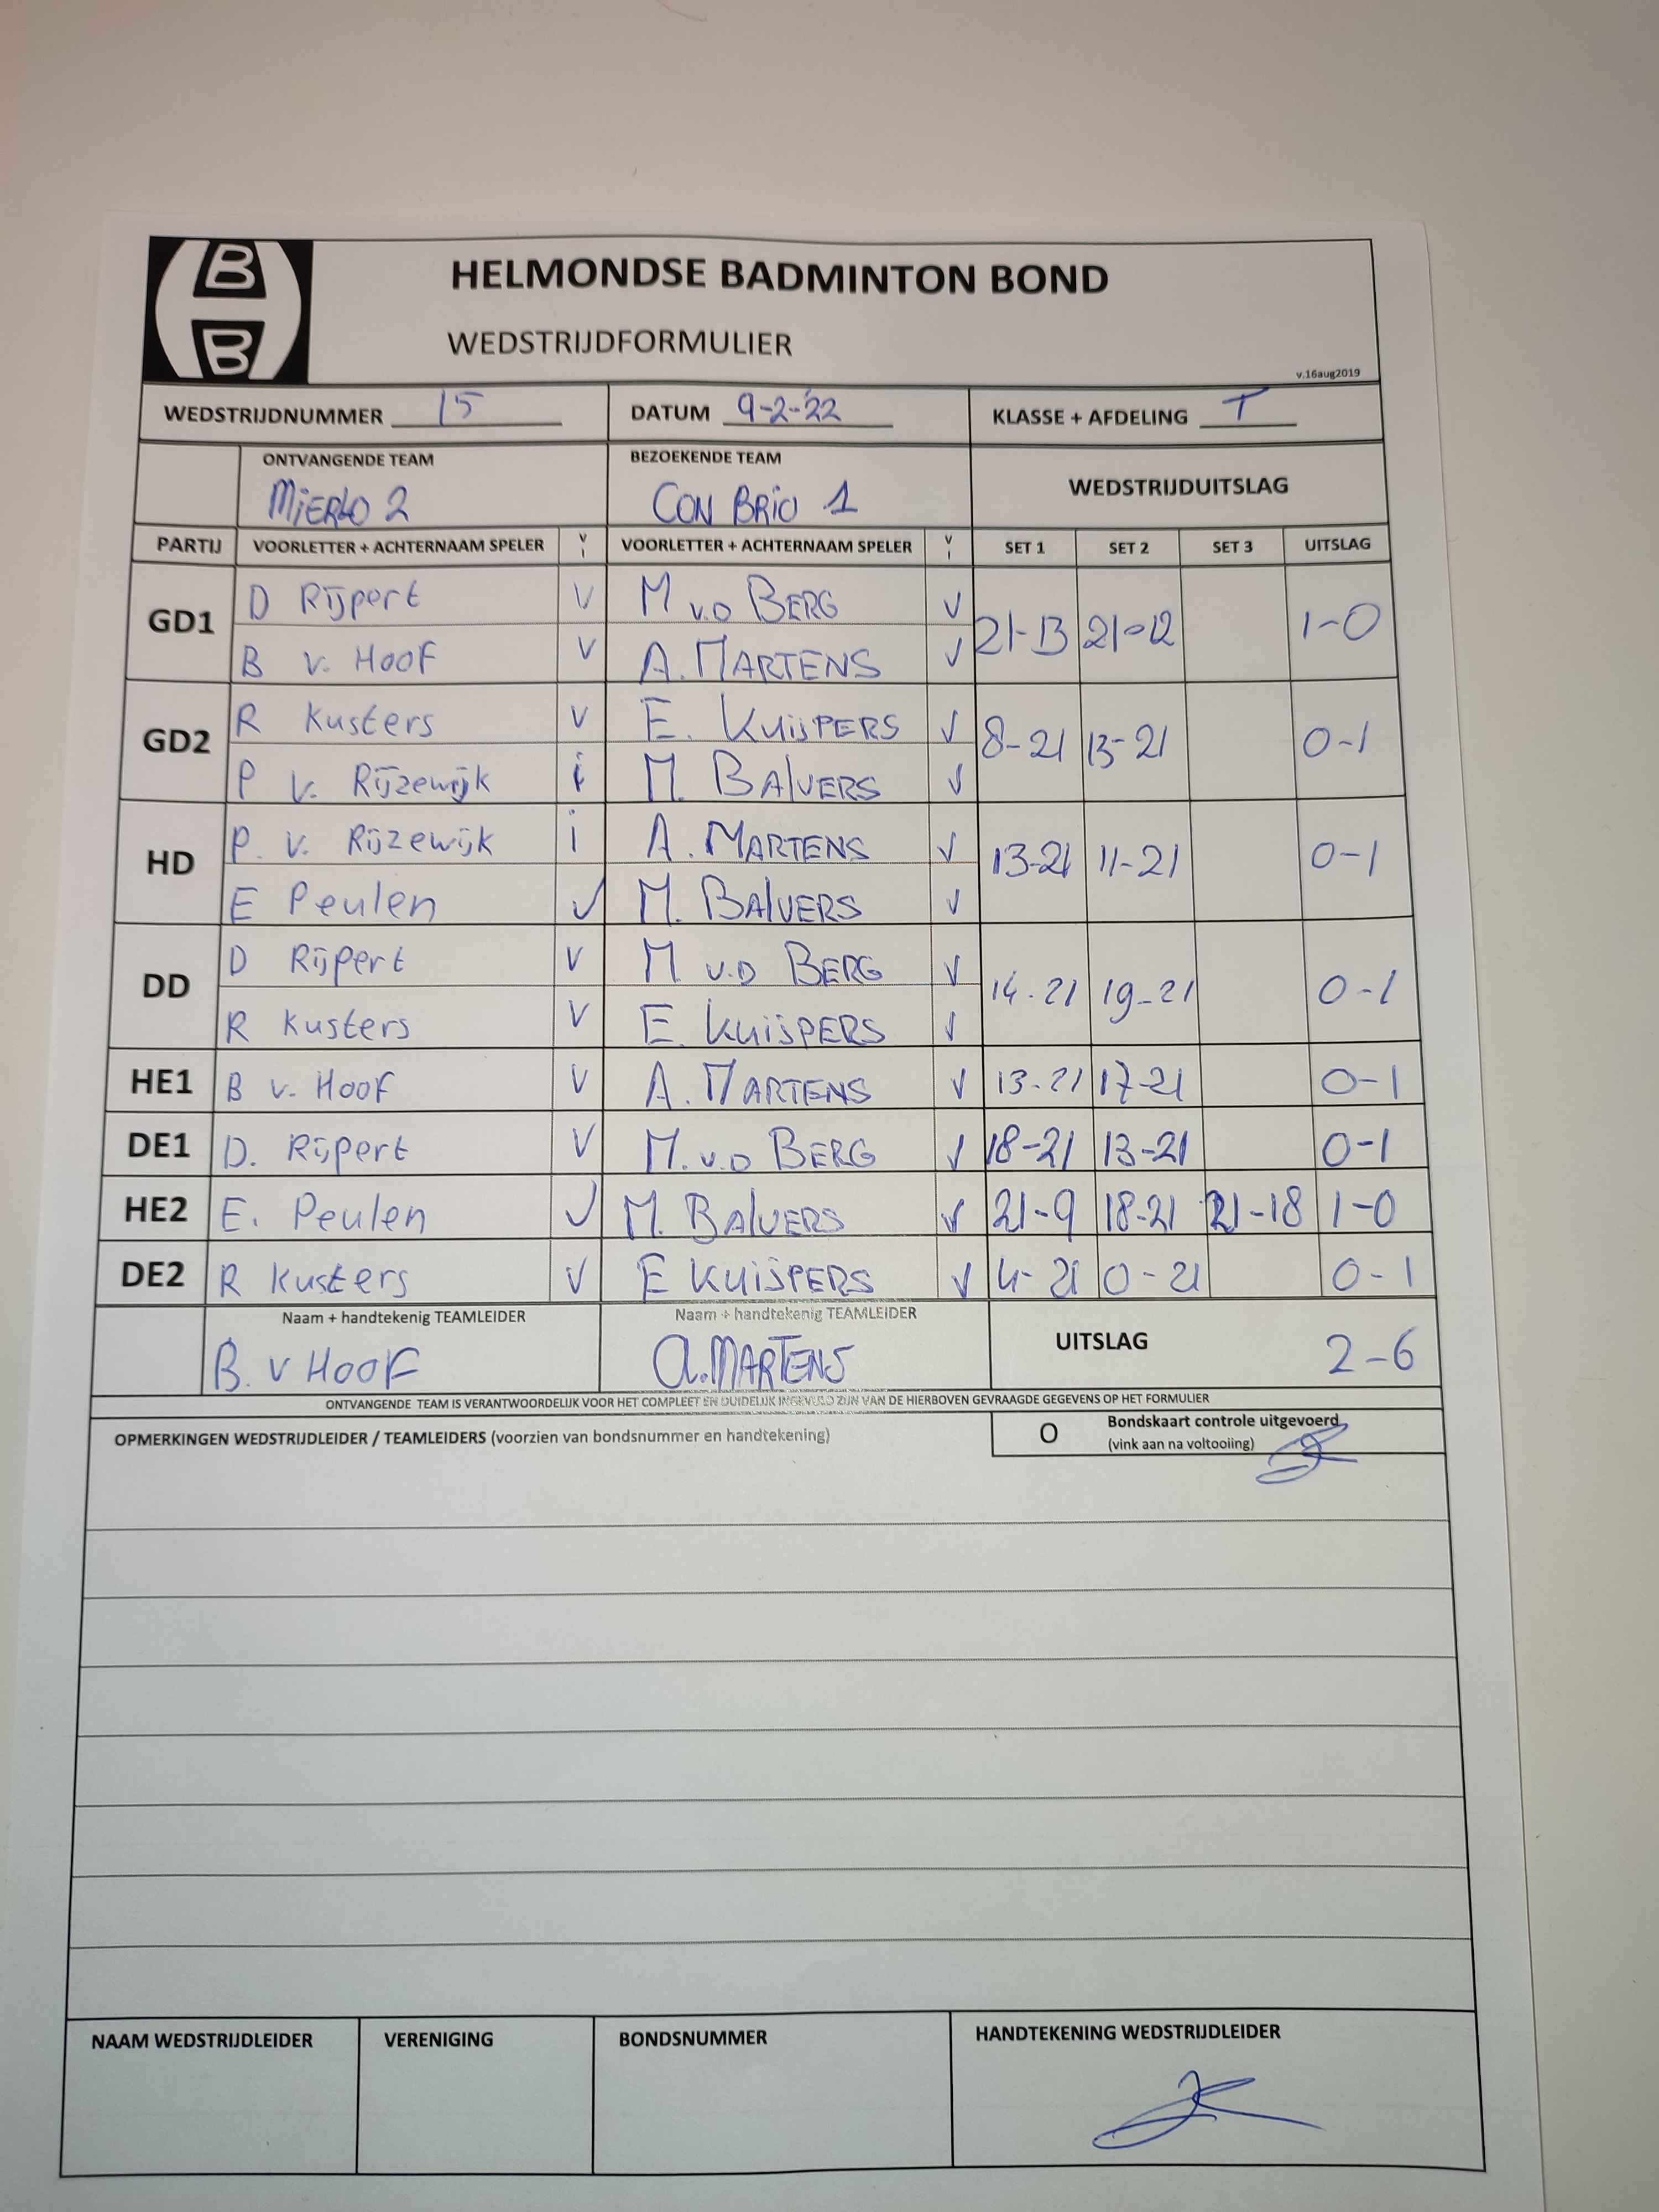 B
B
HELMONDSE BADMINTON BOND
WEDSTRIJDFORMULIER
v.16aug2019
WEDSTRIJDNUMMER 15 DATUM 9-2-'22 KLASSE + AFDELING T
ONTVANGENDE TEAM BEZOEKENDE TEAM WEDSTRIJDUITSLAG
MiERLO 2 CON BRiO 1
PARTIJ VOORLETTER + ACHTERNAAM SPELER V I VOORLETTER + ACHTERNAAM SPELER V I SET 1 SET 2 SET 3 UITSLAG
GD1 D Rijpert V M v.D BERG V 21-13 21-12 1-0
B v. Hoof V A. MARTENS V
GD2 R Kusters V E. KUijPERS V 8-21 13-21 0-1
P v. Rijzewijk i M. BAlVERS V
HD P. v. Rijzewijk i A. MARTENS V 13-21 11-21 0-1
E Peulen V M. BAlVERS V
DD D Rijpert V M v.D BERG V 14-21 19-21 0-1
R Kusters V E. KUijPERS V
HE1 B v. Hoof V A. MARTENS V 13-21 17-21 0-1
DE1 D. Rijpert V M. v.D BERG V 18-21 13-21 0-1
HE2 E. Peulen V M. BAlVERS V 21-9 18-21 21-18 1-0
DE2 R Kusters V E KUijPERS V 4-21 0-21 0-1
Naam + handtekenig TEAMLEIDER Naam + handtekenig TEAMLEIDER UITSLAG 2-6
B. v Hoof A. MARTENS
ONTVANGENDE TEAM IS VERANTWOORDELIJK VOOR HET COMPLEET EN DUIDELIJK INGEVULD ZIJN VAN DE HIERBOVEN GEVRAAGDE GEGEVENS OP HET FORMULIER
OPMERKINGEN WEDSTRIJDLEIDER / TEAMLEIDERS (voorzien van bondsnummer en handtekening) O Bondskaart controle uitgevoerd
(vink aan na voltooiing)
NAAM WEDSTRIJDLEIDER VERENIGING BONDSNUMMER HANDTEKENING WEDSTRIJDLEIDER